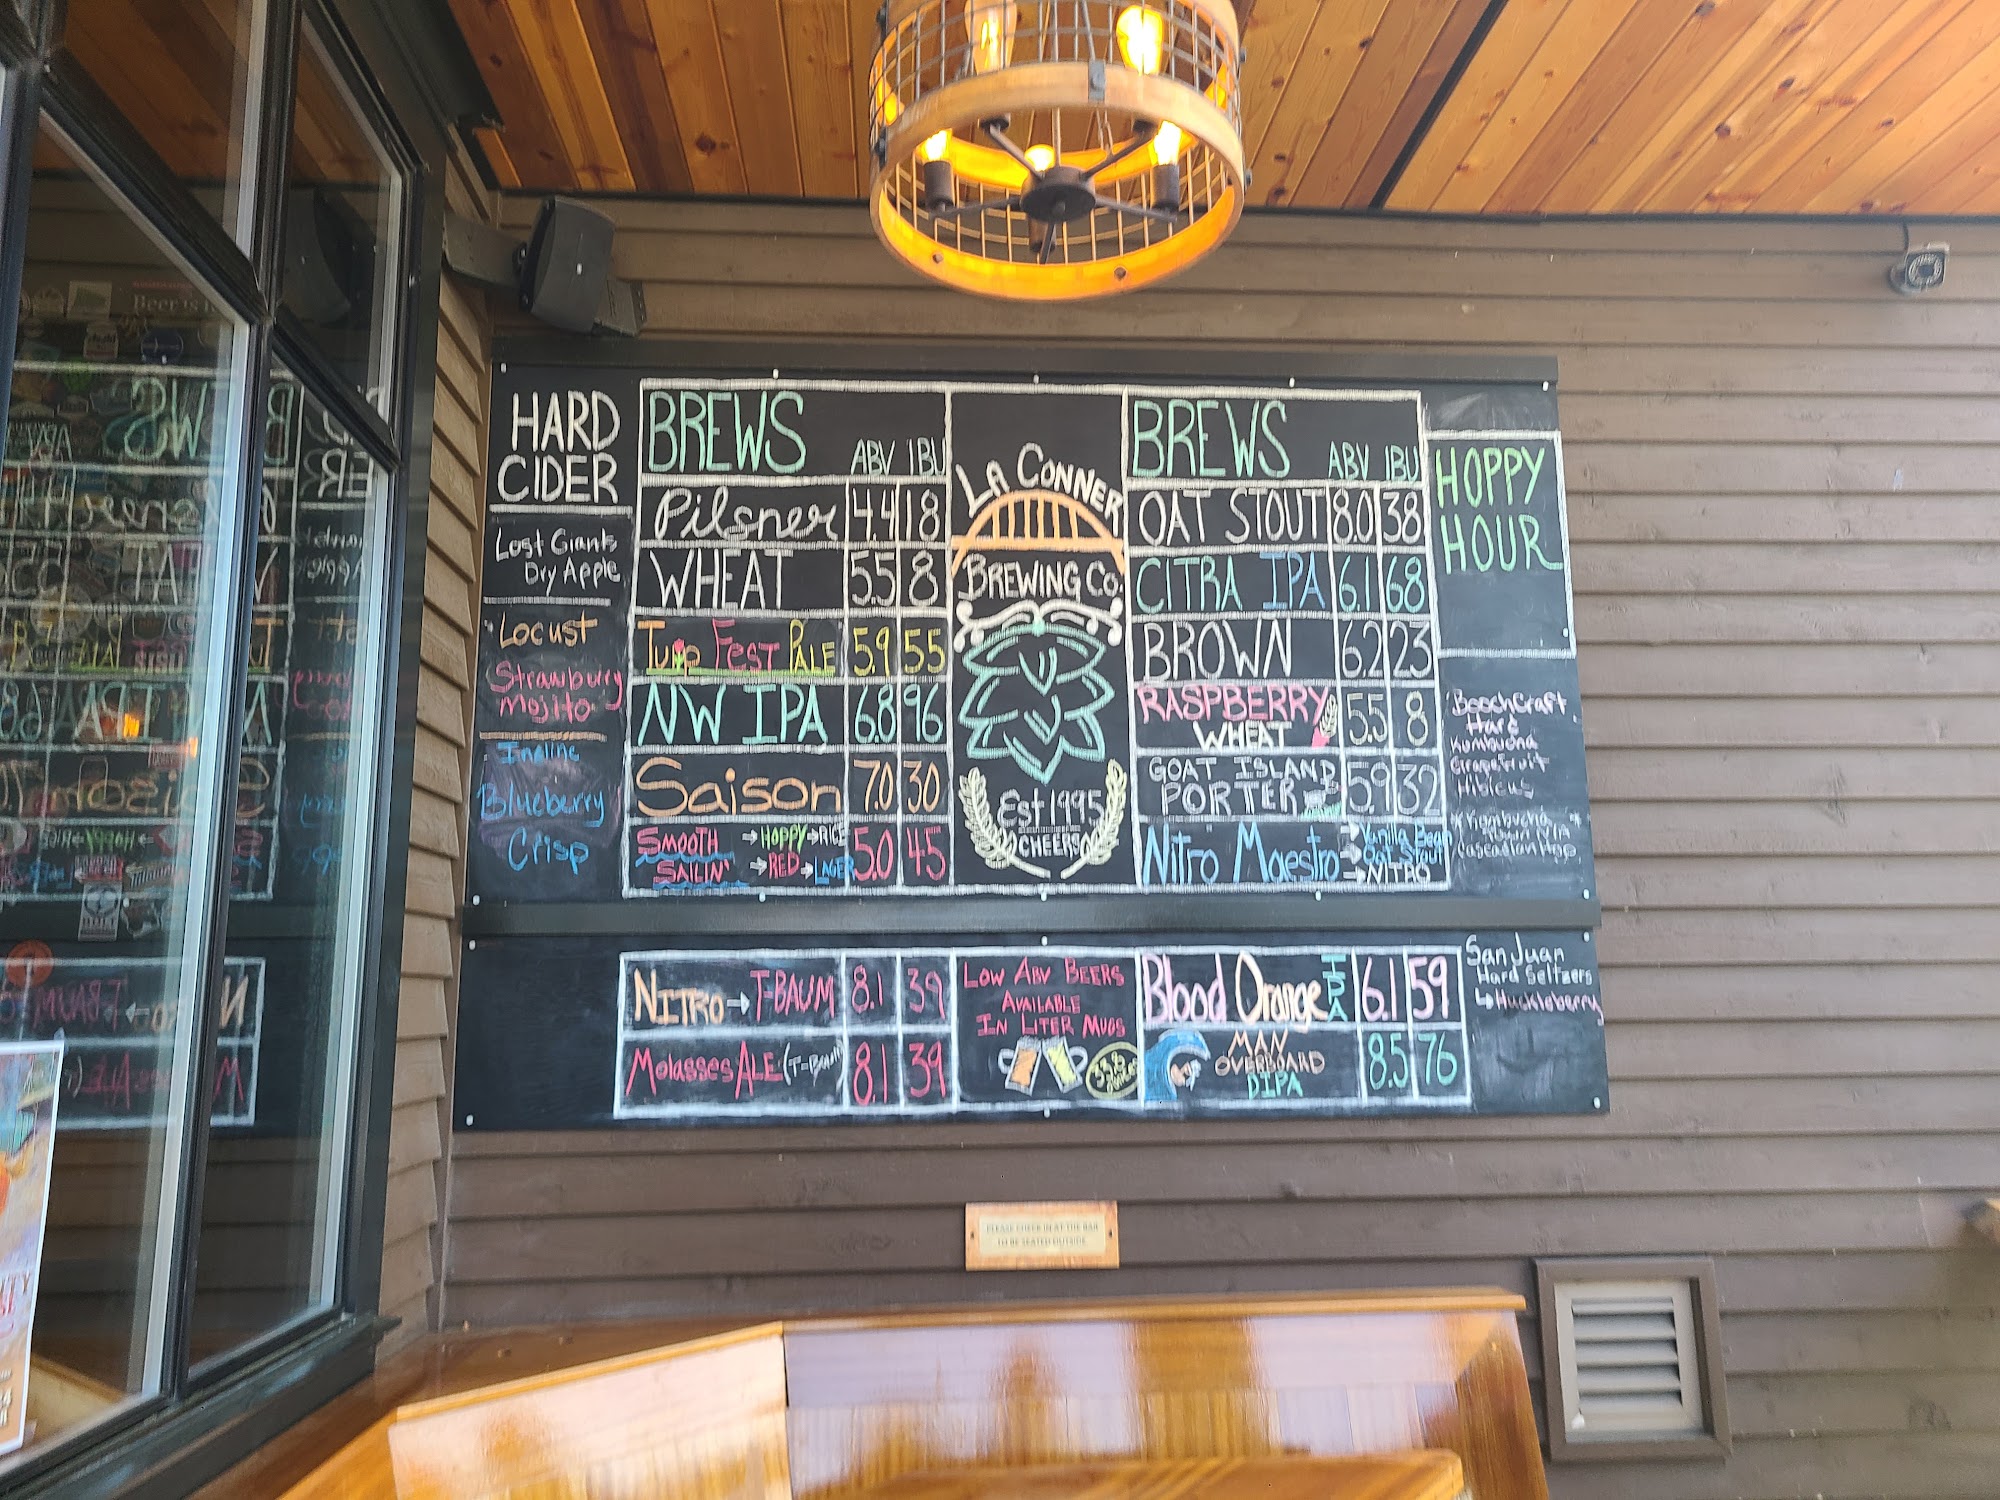 HARD
CIDER
Lost Giants
Dry Apple
Locust
Strawburry
Mojito
Incline
Blueberry
Crisp
BREWS ABV IBU
Pilsner 4.4 18
WHEAT 5.5 8
Tulip Fest Pale 5.9 55
NW IPA 6.8 96
Saison 7.0 30
SMOOTH → HOPPY → RICE
SAILIN' → RED → LAGER 5.0 45
LA CONNER
BREWING CO.
Est 1995
CHEERS
BREWS ABV IBU
OAT STOUT 8.0 38
CITRA IPA 6.1 68
BROWN 6.2 23
RASPBERRY
WHEAT 5.5 8
GOAT ISLAND
PORTER 5.9 32
Nitro Maestro → Vanilla Bean
Oat Stout
→ NITRO
HOPPY
HOUR
BoochCraft
Hard
Kumbucha
Grapefruit
Hibicus
NITRO → T-BAUM 8.1 39
Molasses Ale (T-Baum) 8.1 39
LOW ABV BEERS
AVAILABLE
IN LITER MUGS
33.8
Blood Orange IPA 6.1 59
MAN
OVERBOARD
DIPA 8.5 76
San Juan
Hard Seltzers
↳ Huckleberry
PLEASE CHECK IN AT THE BAR
TO BE SEATED OUTSIDE
Beer is